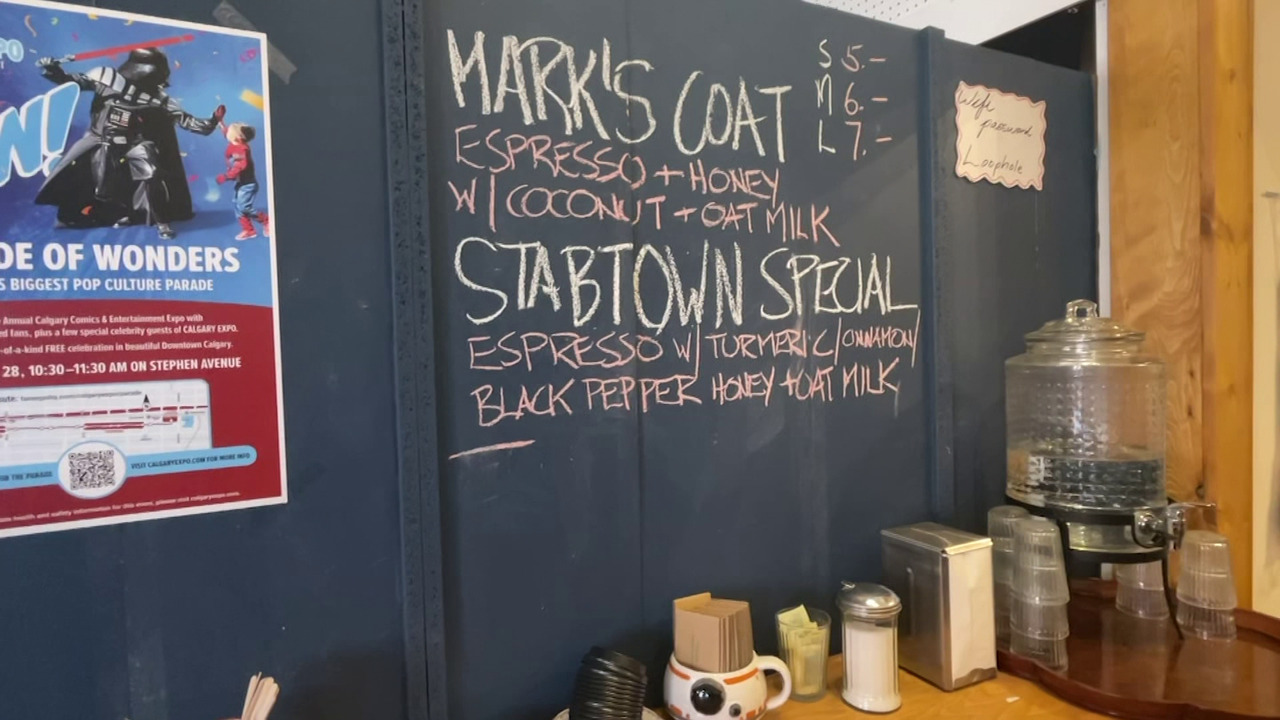 EXPO
W!
DE OF WONDERS
S BIGGEST POP CULTURE PARADE
Annual Calgary Comics & Entertainment Expo with
ed fans, plus a few special celebrity guests of CALGARY EXPO.
-of-a-kind FREE celebration in beautiful Downtown Calgary.
28, 10:30–11:30 AM ON STEPHEN AVENUE
FOR THE PARADE
VISIT CALGARYEXPO.COM FOR MORE INFO
health and safety information for this event, please visit calgaryexpo.com.
MARK'S COAT
S 5.–
M 6.–
L 7.–
ESPRESSO + HONEY
W/ COCONUT + OAT MILK
STABTOWN SPECIAL
ESPRESSO W/ TURMERIC/CINNAMON/
BLACK PEPPER HONEY + OAT MILK
Wifi
password
Loophole